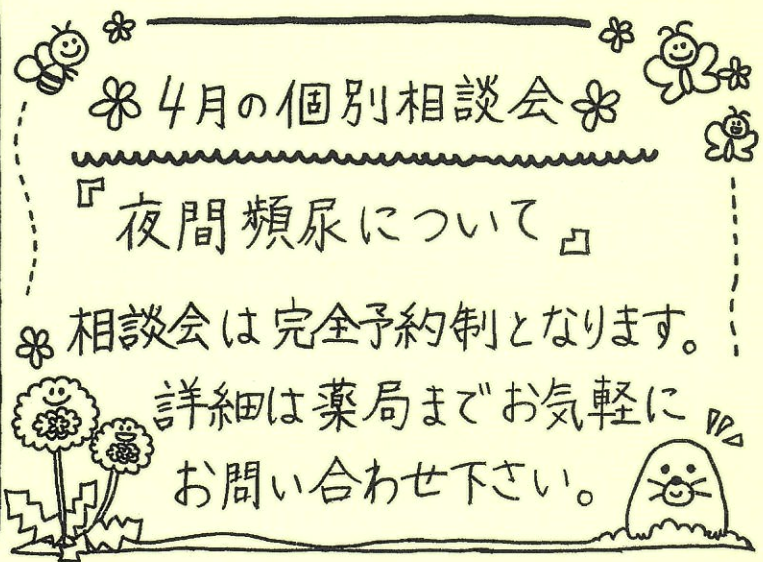 4月の個別相談会
『夜間頻尿について』
相談会は完全予約制となります。
詳細は薬局までお気軽に
お問い合わせ下さい。